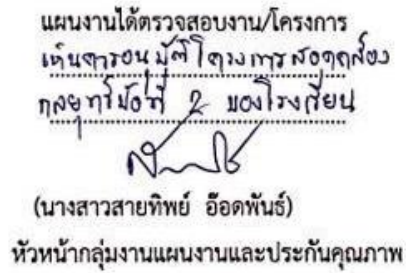 แผนงานได้ตรวจสอบงาน/โครงการ
เห็นควรอนุมัติโครงการสอดคล้อง
กลยุทธ์ข้อที่ 2 ของโรงเรียน
(นางสาวสายทิพย์ อ๊อดพันธ์)
หัวหน้ากลุ่มงานแผนงานและประกันคุณภาพ